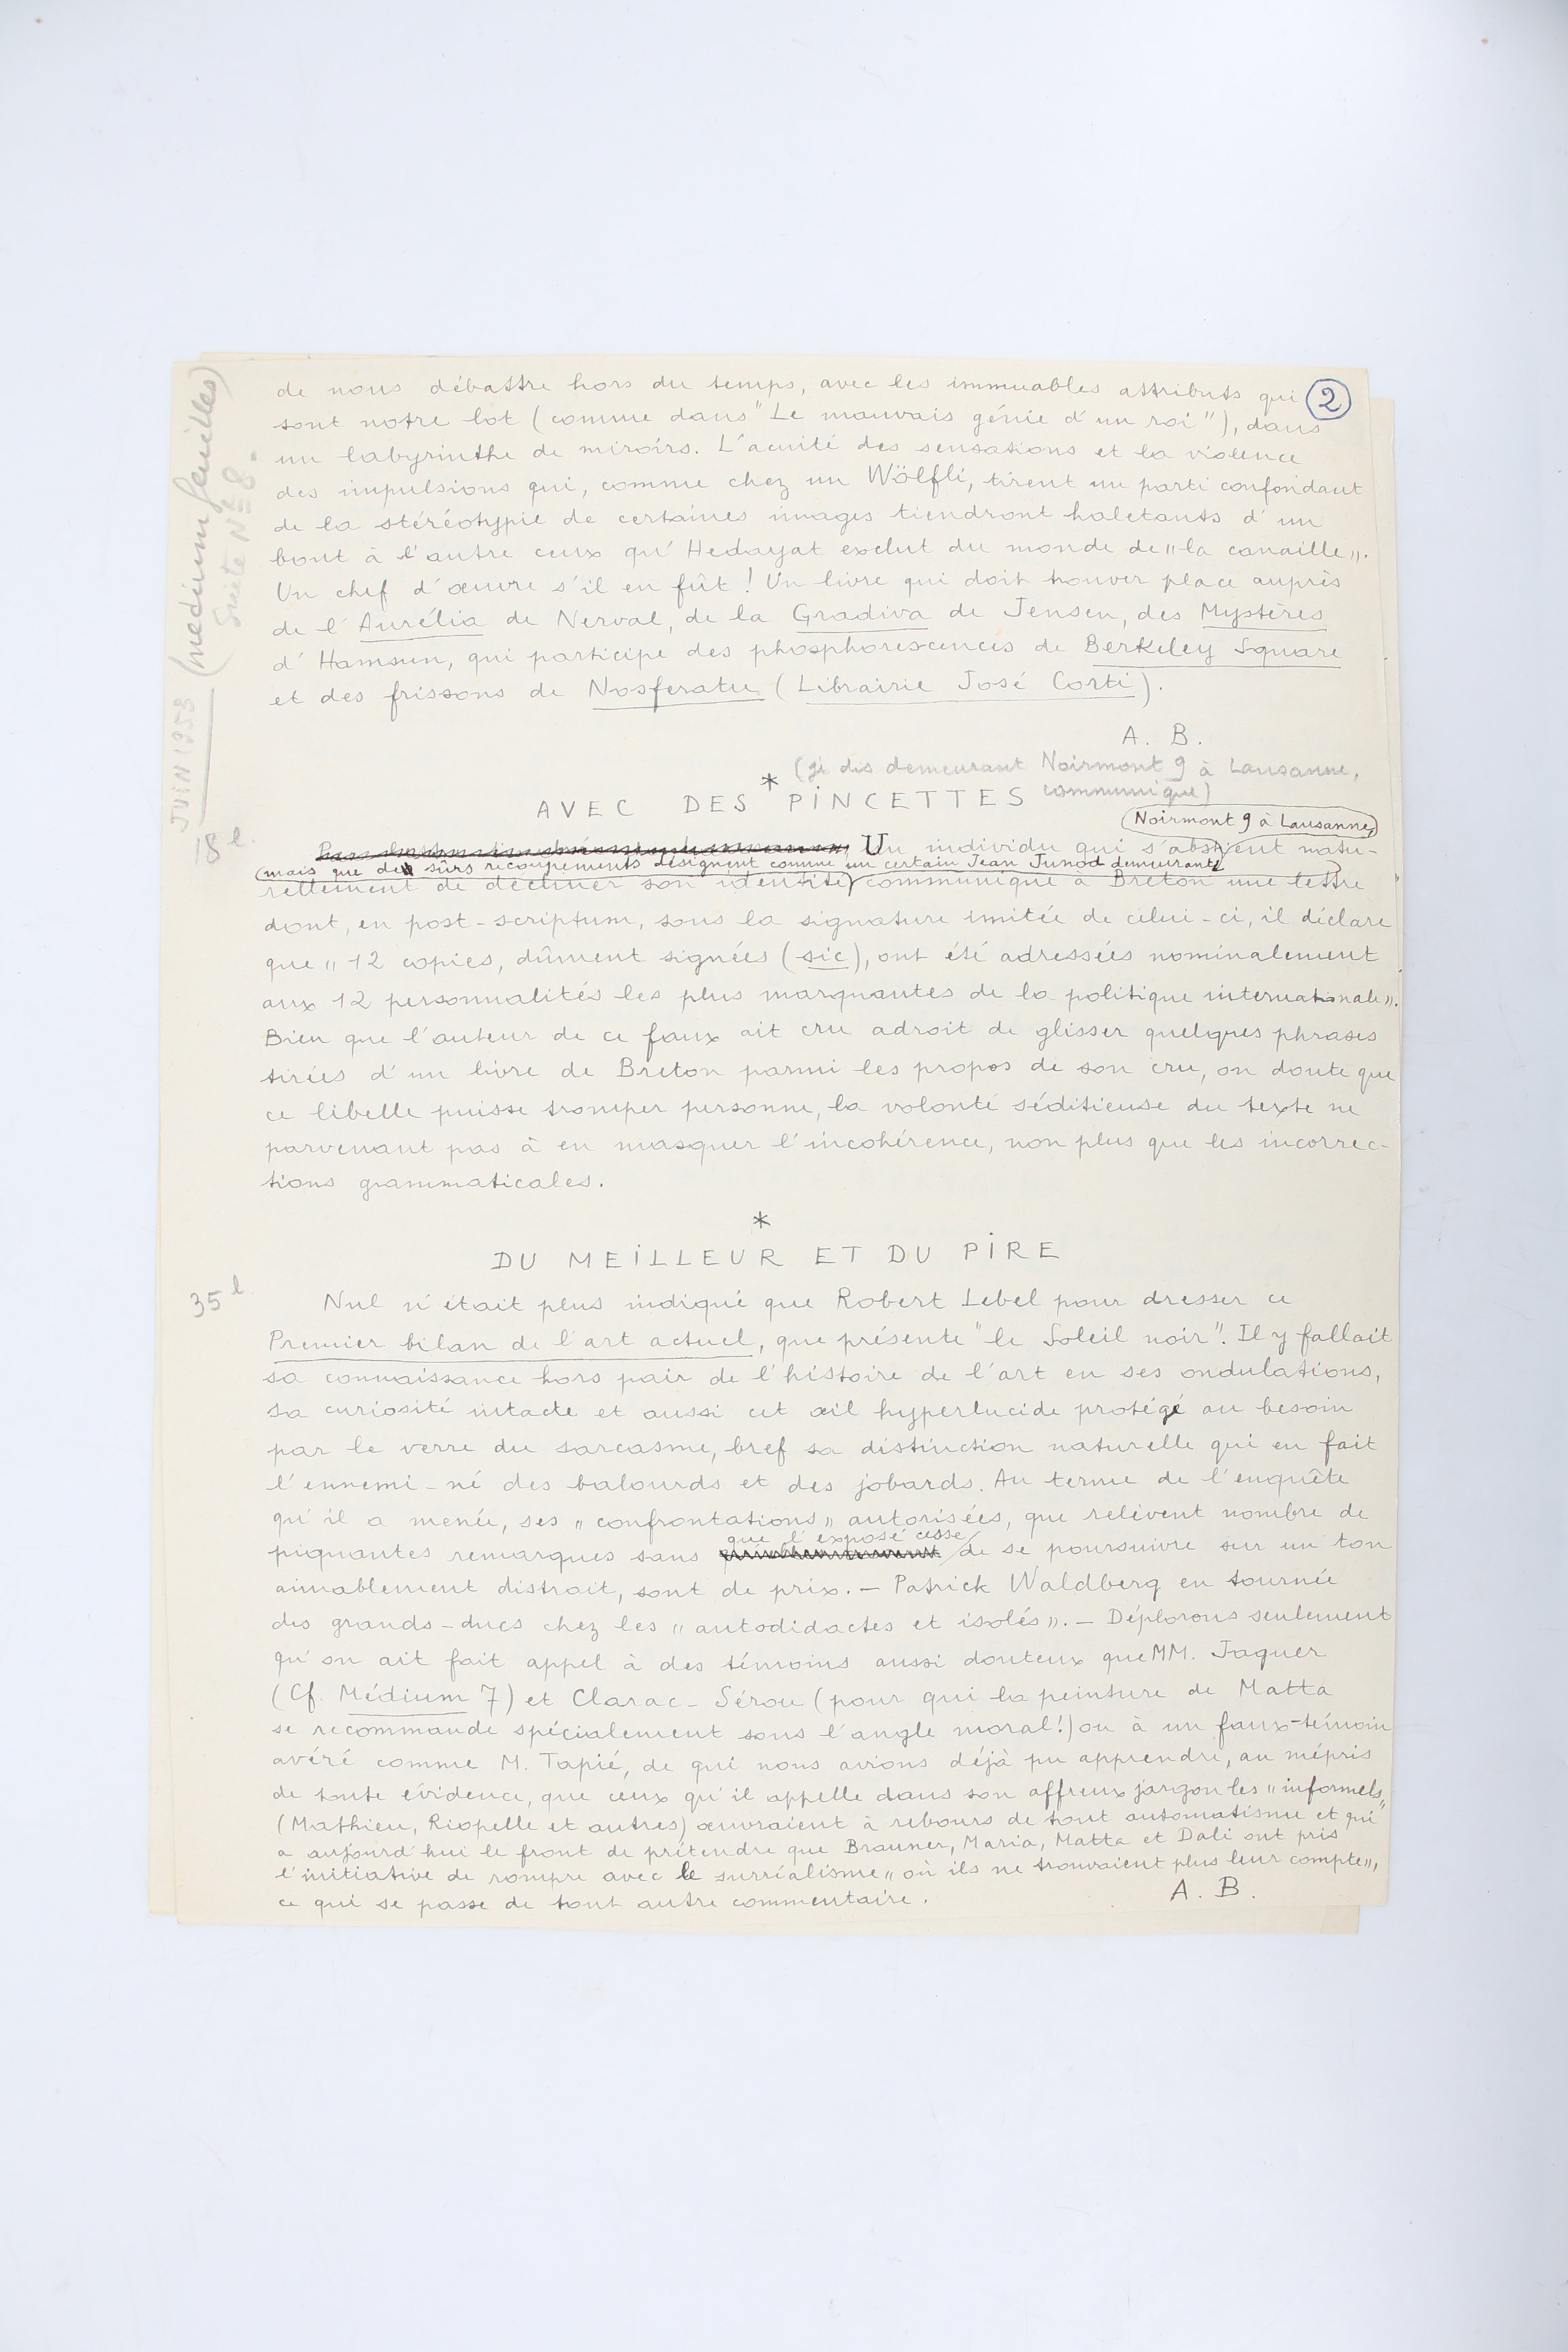 de nous débattre hors du temps, avec les immuables attributs qui
2
sont notre lot (comme dans "Le mauvais génie d'un roi"), dans
un labyrinthe de miroirs. L'acuité des sensations et la violence
des impulsions qui, comme chez un Wölfli, tirent un parti confondant
de la stéréotypie de certaines images tiendront haletants d'un
bout à l'autre ceux qu'Hedayat exclut du monde de "la canaille".
Un chef d'œuvre s'il en fût ! Un livre qui doit trouver place auprès
de l'Aurélia de Nerval, de la Gradiva de Jensen, des Mystères
d'Hamsun, qui participe des phosphorescences de Berkeley Square
et des frissons de Nosferatu (Librairie José Corti).
A. B.
(medium feuilles)
Suite N° 8.
JUIN 1953
*
(je dis demeurant Noirmont 9 à Lausanne,
communique)
AVEC DES PINCETTES
Noirmont 9 à Lausanne,
8 l.
Un individu qui s'abstient natu-
mais que de sûrs recoupements désignent comme un certain Jean Junod demeurant
rellement de décliner son identité communique à Breton une lettre
dont, en post-scriptum, sous la signature imitée de celui-ci, il déclare
que "12 copies, dûment signées (sic), ont été adressées nominalement
aux 12 personnalités les plus marquantes de la politique internationale".
Bien que l'auteur de ce faux ait cru adroit de glisser quelques phrases
tirées d'un livre de Breton parmi les propos de son cru, on doute que
ce libelle puisse tromper personne, la volonté séditieuse du texte ne
parvenant pas à en masquer l'incohérence, non plus que les incorrec-
tions grammaticales.
*
DU MEILLEUR ET DU PIRE
35 l.
Nul n'était plus indiqué que Robert Lebel pour dresser ce
Premier bilan de l'art actuel, que présente "le Soleil noir". Il y fallait
sa connaissance hors pair de l'histoire de l'art en ses ondulations,
sa curiosité intacte et aussi cet œil hyperlucide protégé au besoin
par le verre du sarcasme, bref sa distinction naturelle qui en fait
l'ennemi-né des balourds et des jobards. Au terme de l'enquête
qu'il a menée, ses "confrontations" autorisées, que relèvent nombre de
que l'exposé cesse
piquantes remarques sans de se poursuivre sur un ton
aimablement distrait, sont de prix. — Patrick Waldberg en tournée
des grands-ducs chez les "autodidactes et isolés". — Déplorons seulement
qu'on ait fait appel à des témoins aussi douteux que MM. Jaguer
(Cf. Médium 7) et Clarac-Sérou (pour qui la peinture de Matta
se recommande spécialement sous l'angle moral!) ou à un faux-témoin
avéré comme M. Tapié, de qui nous avions déjà pu apprendre, au mépris
de toute évidence, que ceux qu'il appelle dans son affreux jargon les "informels"
(Mathieu, Riopelle et autres) œuvraient à rebours de tout automatisme et qui
a aujourd'hui le front de prétendre que Brauner, Maria, Matta et Dali ont pris
l'initiative de rompre avec le surréalisme "où ils ne trouvaient plus leur compte",
ce qui se passe de tout autre commentaire.
A. B.